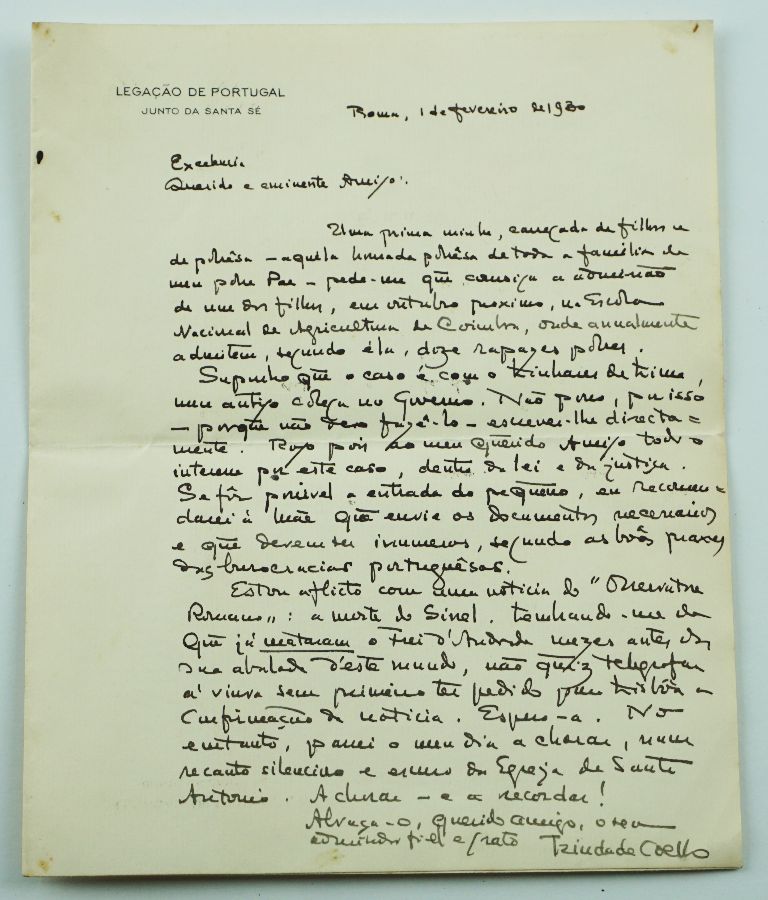 LEGAÇÃO DE PORTUGAL
JUNTO DA SANTA SÉ
Roma, 1 de fevereiro de 1930
Excelencia
Querido e eminente Amigo:
Uma prima minha, carregada de filhos e
de pobrêsa — aquela honrada pobrêsa de toda a familia de
meu pobre Pae — pede-me que consiga a admissão
de um dos filhos, em outubro proximo, na Escola
Nacional de Agricultura de Coimbra, onde annualmente
admitem, segundo éla, doze rapazes pobres.
Suponho que o caso é com o Linhares de Lima,
meu antigo coléga no Governo. Não posso, por isso
— porque não devo fazê-lo — escrever-lhe directa=
mente. Rogo pois ao meu Querido Amigo todo o
interesse por este caso, dentro da lei e da justiça.
Se fôr possivel a entrada do pequeno, eu recomen-
darei á Mãe que envie os documentos necessarios
e que devem ser inumeros, segundo as bôas praxes
das burocracias portuguêsas.
Estou aflicto com uma noticia do "Osservatore
Romano": a morte do Sinel. Lembrando-me de
que já mataram o Frei d'Andrade mezes antes da
sua abalada d'este mundo, não quiz telegrafar
á viuva sem primeiro ter pedido para Lisbôa a
confirmação da noticia. Espero-a. No
emtanto, passei o meu dia a chorar, num
recanto silencioso e escuro da Egreja de Santo
Antonio. A chorar — e a recordar!
Abraça-o, querido amigo, o seu
admirador fiel e grato Trindade Coelho